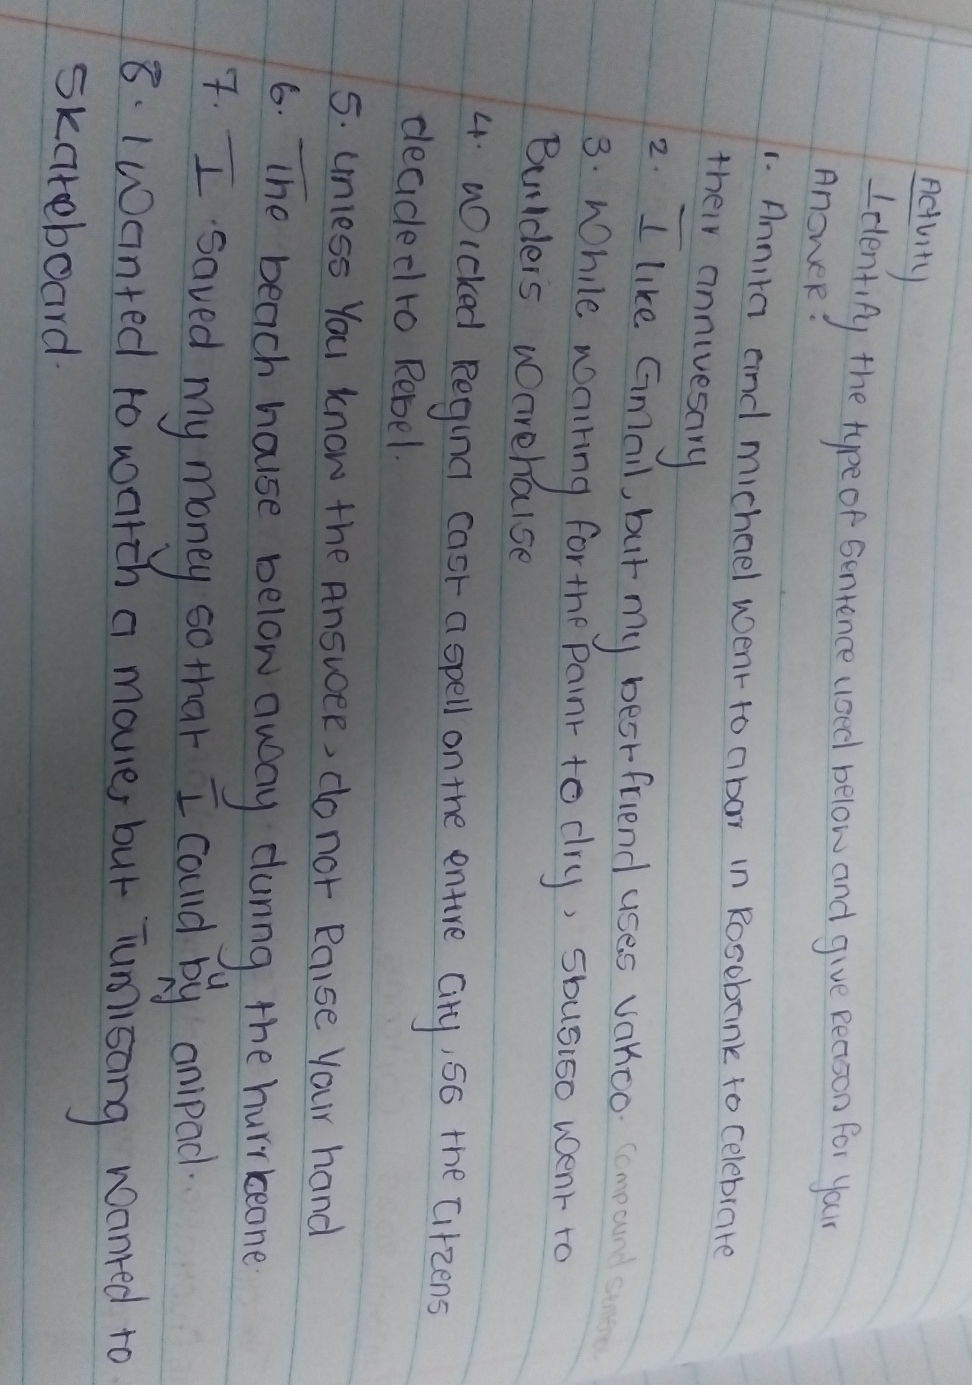 Activity
Identify the type of sentence used below and give reason for your
Answer.
1. Annita and michael went to a bar in Rosebank to celebrate
their annivesary
2. I like Gmail, but my best friend uses Yahoo. compound
3. While waiting for the paint to dry, Sbusiso went to
Builders warehouse
4. Wicked Regina cast a spell on the entire city, so the citzens
decided to Rebel.
5. Unless you know the Answer, do not Raise your hand
6. The beach house below away during the hurrkeane.
7. I saved my money so that I could by anipad.
8. I wanted to watch a movie, but Tumisang wanted to
Skateboard.